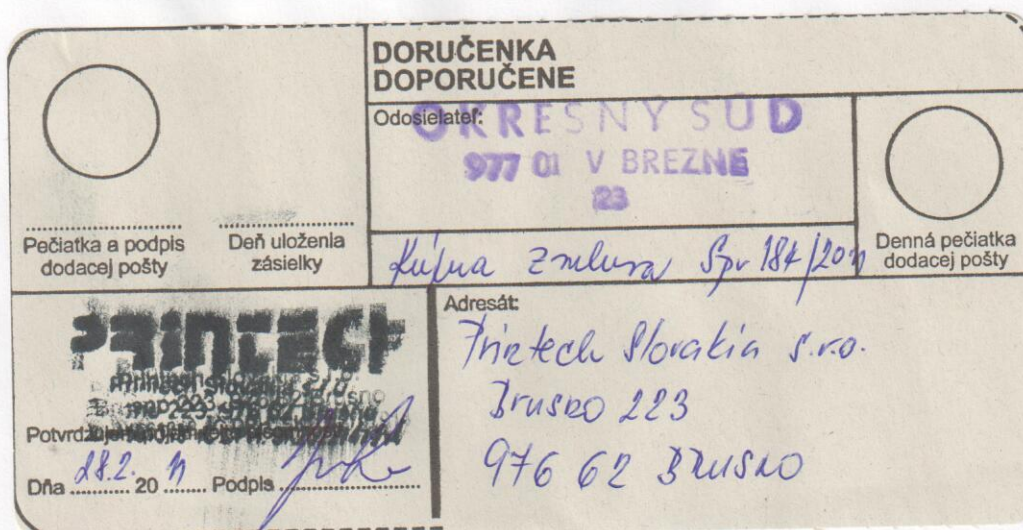 DORUČENKA
DOPORUČENE
Odosielateľ:
OKRESNÝ SÚD
977 01 V BREZNE
23
Pečiatka a podpis
dodacej pošty
Deň uloženia
zásielky
Kúpna zmluva Spr 184/2011
Denná pečiatka
dodacej pošty
PRINTECH
Dňa 28.2. 20 11 Podpis
Adresát:
Printech Slovakia s.r.o.
Brusno 223
976 62 Brusno